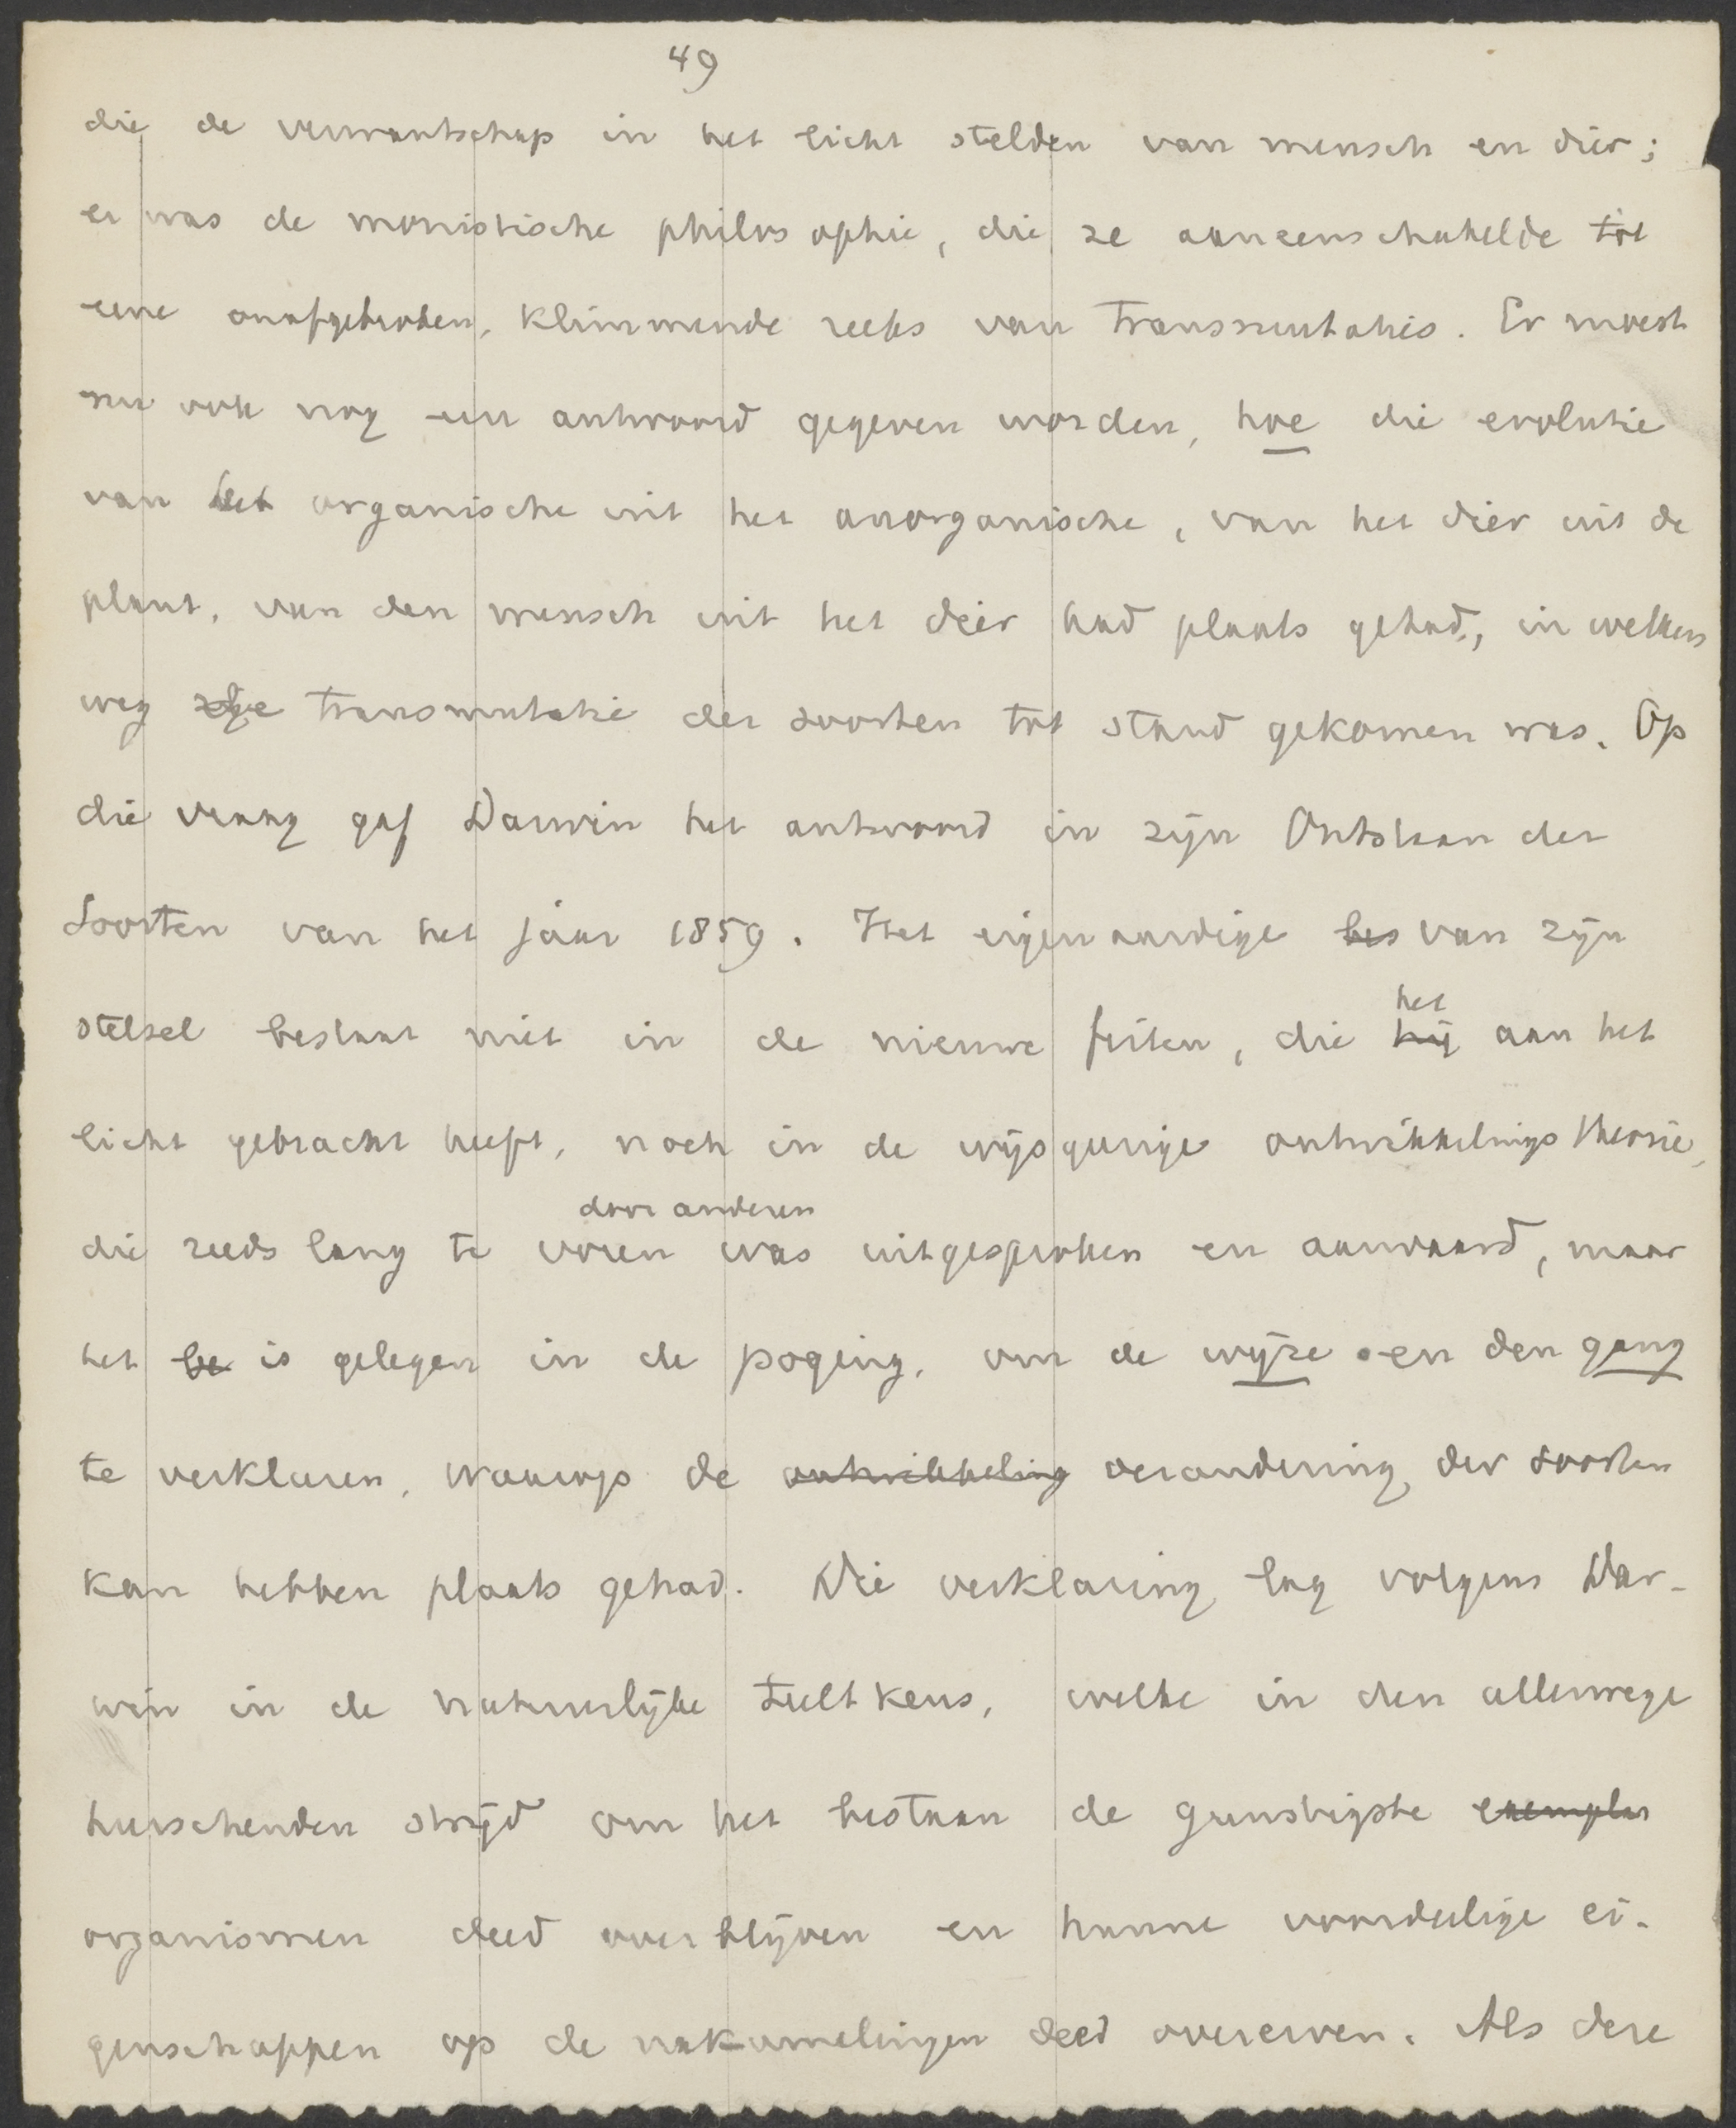 49
die de verwantschap in het licht stelden van mensch en dier;
er was de monistische philosophie, die ze aaneenschakelde tot
eene onafgebroken, klimmende reeks van transmutaties. Er moest
nu ook nog een antwoord gegeven worden, hoe die evolutie
van het organische uit het anorganische, van het dier uit de
plant, van den mensch uit het dier had plaats gehad, in welken
weg de transmutatie der soorten tot stand gekomen was. Op
die vraag gaf Darwin het antwoord in zijn Ontstaan der
Soorten van het jaar 1859. Het eigenaardige bes van zijn
het
stelsel bestaat niet in de nieuwe feiten, die hij aan het
licht gebracht heeft, noch in de wijsgeerige ontwikkelingstheorie,
door anderen
die reeds lang te voren was uitgesproken en aanvaard, maar
het be is gelegen in de poging, om de wijze en den gang
te verklaren, waarop de ontwikkeling verandering der soorten
kan hebben plaats gehad. Die verklaring lag volgens Dar-
win in de natuurlijke teeltkeus, welke in den allerwege
heerschenden strijd om het bestaan de gunstigste exemplar
organismen deed overblijven en hunne voordeelige ei-
genschappen op de nakomelingen deed overerven. Als deze